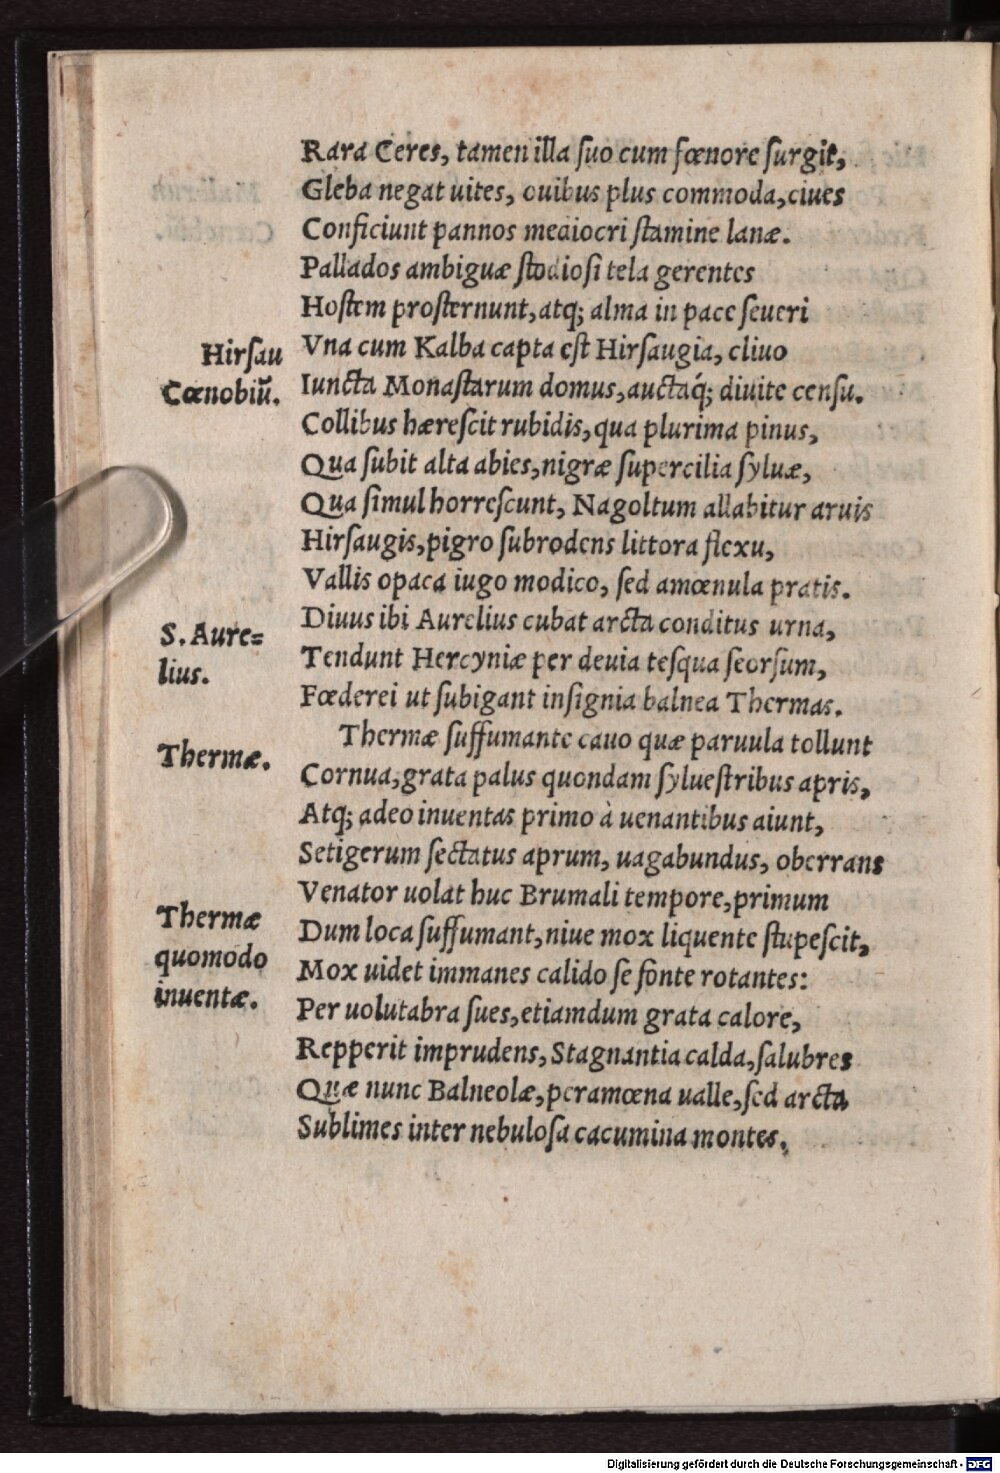 Rara Ceres, tamen illa ſuo cum fœnore ſurgit,
Gleba negat uites, ouibus plus commoda, ciues
Conficiunt pannos mediocri ſtamine lanæ.
Pallados ambiguæ ſtudioſi tela gerentes
Hoſtem proſternunt, atq; alma in pace ſeueri
Hirſau
Vna cum Kalba capta eſt Hirſaugia, cliuo
Cœnobiũ.
Iuncta Monaſtarum domus, auctaq́; diuite cenſu.
Collibus hæreſcit rubidis, qua plurima pinus,
Qua ſubit alta abies, nigræ ſupercilia ſyluæ,
Qua ſimul horreſcunt, Nagoltum allabitur aruis
Hirſaugis, pigro ſubrodens littora flexu,
Vallis opaca iugo modico, ſed amœnula pratis.
S. Aure=
lius.
Diuus ibi Aurelius cubat arcta conditus urna,
Tendunt Hercyniæ per deuia teſqua ſeorſum,
Fœderei ut ſubigant inſignia balnea Thermas.
Thermæ.
Thermæ ſuffumante cauo quæ paruula tollunt
Cornua, grata palus quondam ſylueſtribus apris,
Atq; adeo inuentas primo à uenantibus aiunt,
Setigerum ſectatus aprum, uagabundus, oberrans
Venator uolat huc Brumali tempore, primum
Thermæ
quomodo
inuentæ.
Dum loca ſuffumant, niue mox liquente ſtupeſcit,
Mox uidet immanes calido ſe fonte rotantes:
Per uolutabra ſues, etiamdum grata calore,
Repperit imprudens, Stagnantia calda, ſalubres
Quæ nunc Balneolæ, peramœna ualle, ſed arcta
Sublimes inter nebuloſa cacumina montes.
Digitalisierung gefördert durch die Deutsche Forschungsgemeinschaft - DFG